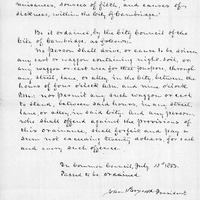 nuisances, sources of filth, and causes of
sickness, within the city of Cambridge.
Be it ordained, by the City Council of the
City of Cambridge, as follows,
No person shall drive, or cause to be driven
any cart or wagon containing night soil, or
any wagon or cart used for that purpose, through
any street, lane, or alley in the city between the
hours of four o'clock A.M. and nine o'clock
P.M. nor permit any such wagon or cart
to stand, between said hours, in any street,
lane, or alley, in said city. And any person
who shall offend against the provisions of
this ordinance, shall forfeit and pay a
sum not exceeding twenty dollars, for each
and every such offence.
In Common Council, July 13th
Passed to be ordained
President